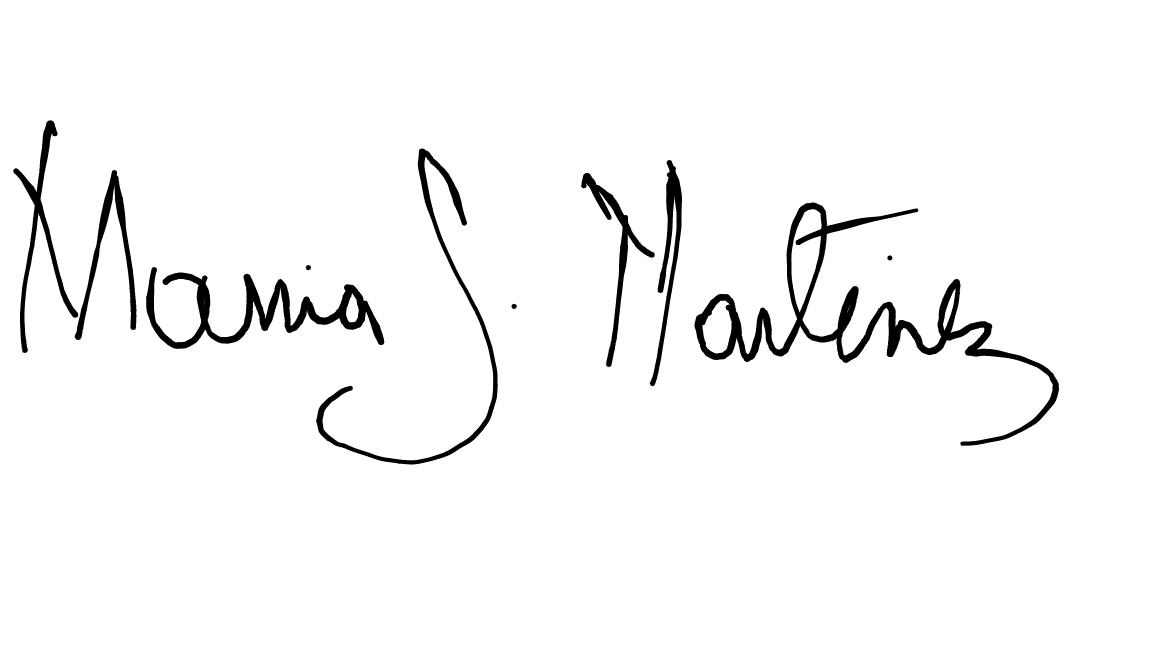 Maria S. Martinez